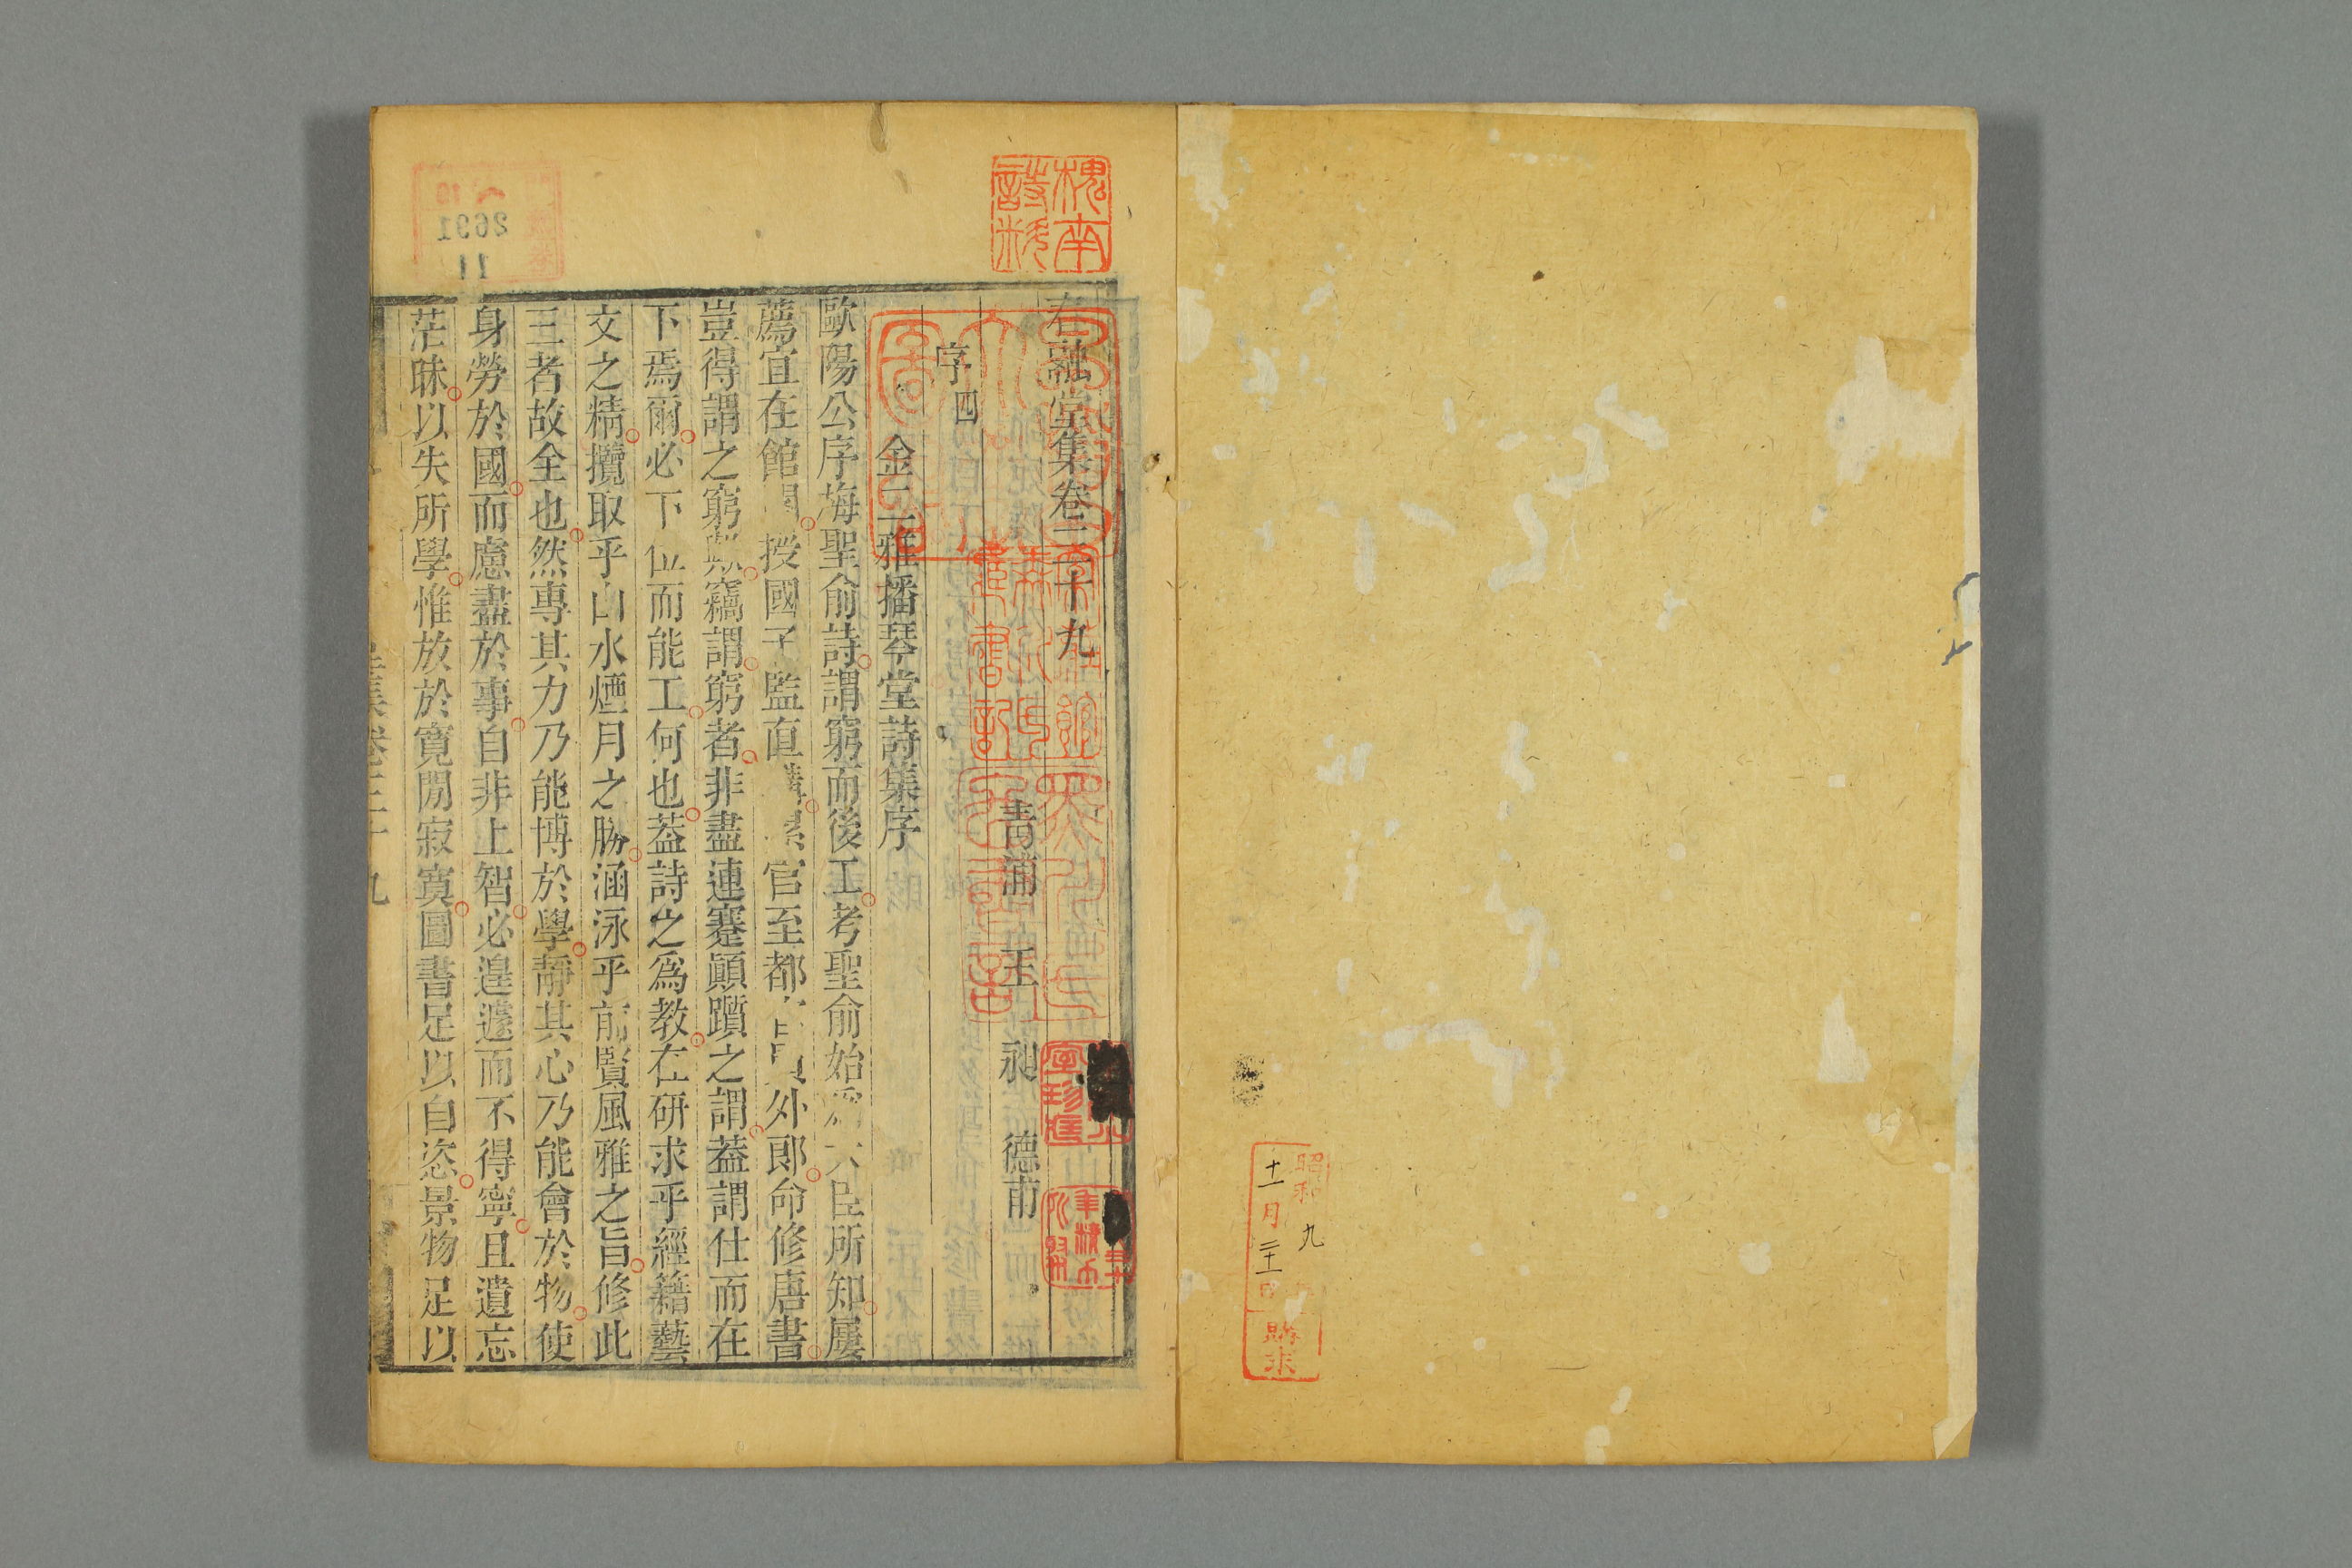 昭和九
十一月二十一日
購求
槐南
詩料
春融堂集卷三十九
青浦 王 昶 德甫
序四
金二雅播琴堂詩集序
歐陽公序梅聖俞詩謂窮而後工考聖俞始為大臣所知屢
薦宜在館閣授國子監直講累官至都官員外郎命修唐書
豈得謂之窮歟竊謂窮者非盡連蹇顚躓之謂葢謂仕而在
下焉爾必下位而能工何也葢詩之爲教在研求乎經籍藝
文之精攬取乎山水煙月之勝涵泳乎前賢風雅之旨修此
三者故全也然專其力乃能博於學靜其心乃能會於物使
身勞於國而慮盡於事自非上智必遑遽而不得寧且遺忘
茫昧以失所學惟放於寬閒寂寞圖書足以自恣景物足以
集卷三十九
2691
11